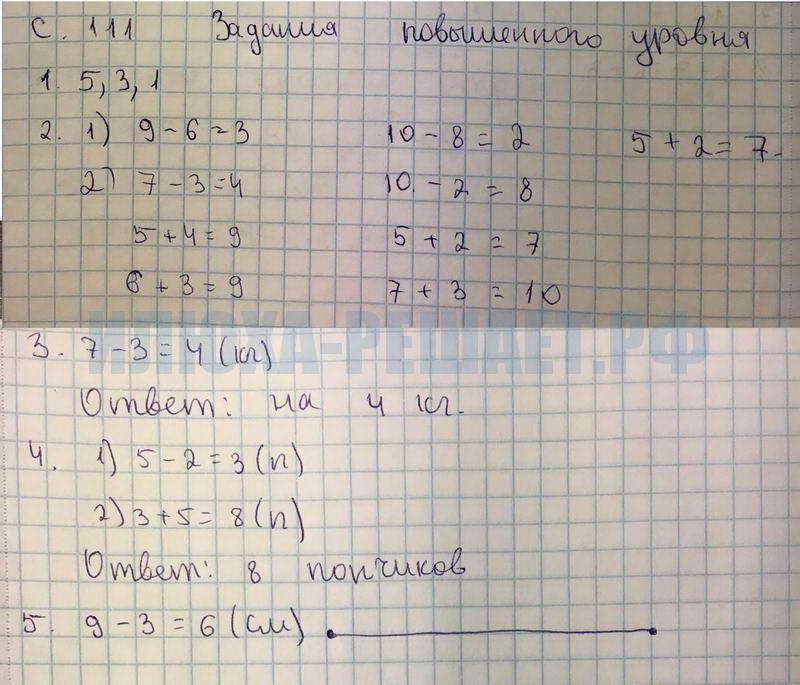 с. 111 Задания повышенного уровня
1. 5, 3, 1
2. 1) 9 - 6 = 3 10 - 8 = 2 5 + 2 = 7.
2) 7 - 3 = 4 10. - 2 = 8
5 + 4 = 9 5 + 2 = 7
6 + 3 = 9 7 + 3 = 10
ИЛЮХА-РЕШАЕТ.РФ
3. 7 - 3 = 4 (кг)
Ответ: на 4 кг.
4. 1) 5 - 2 = 3 (п)
2) 3 + 5 = 8 (п)
Ответ: 8 пончиков
5. 9 - 3 = 6 (см)